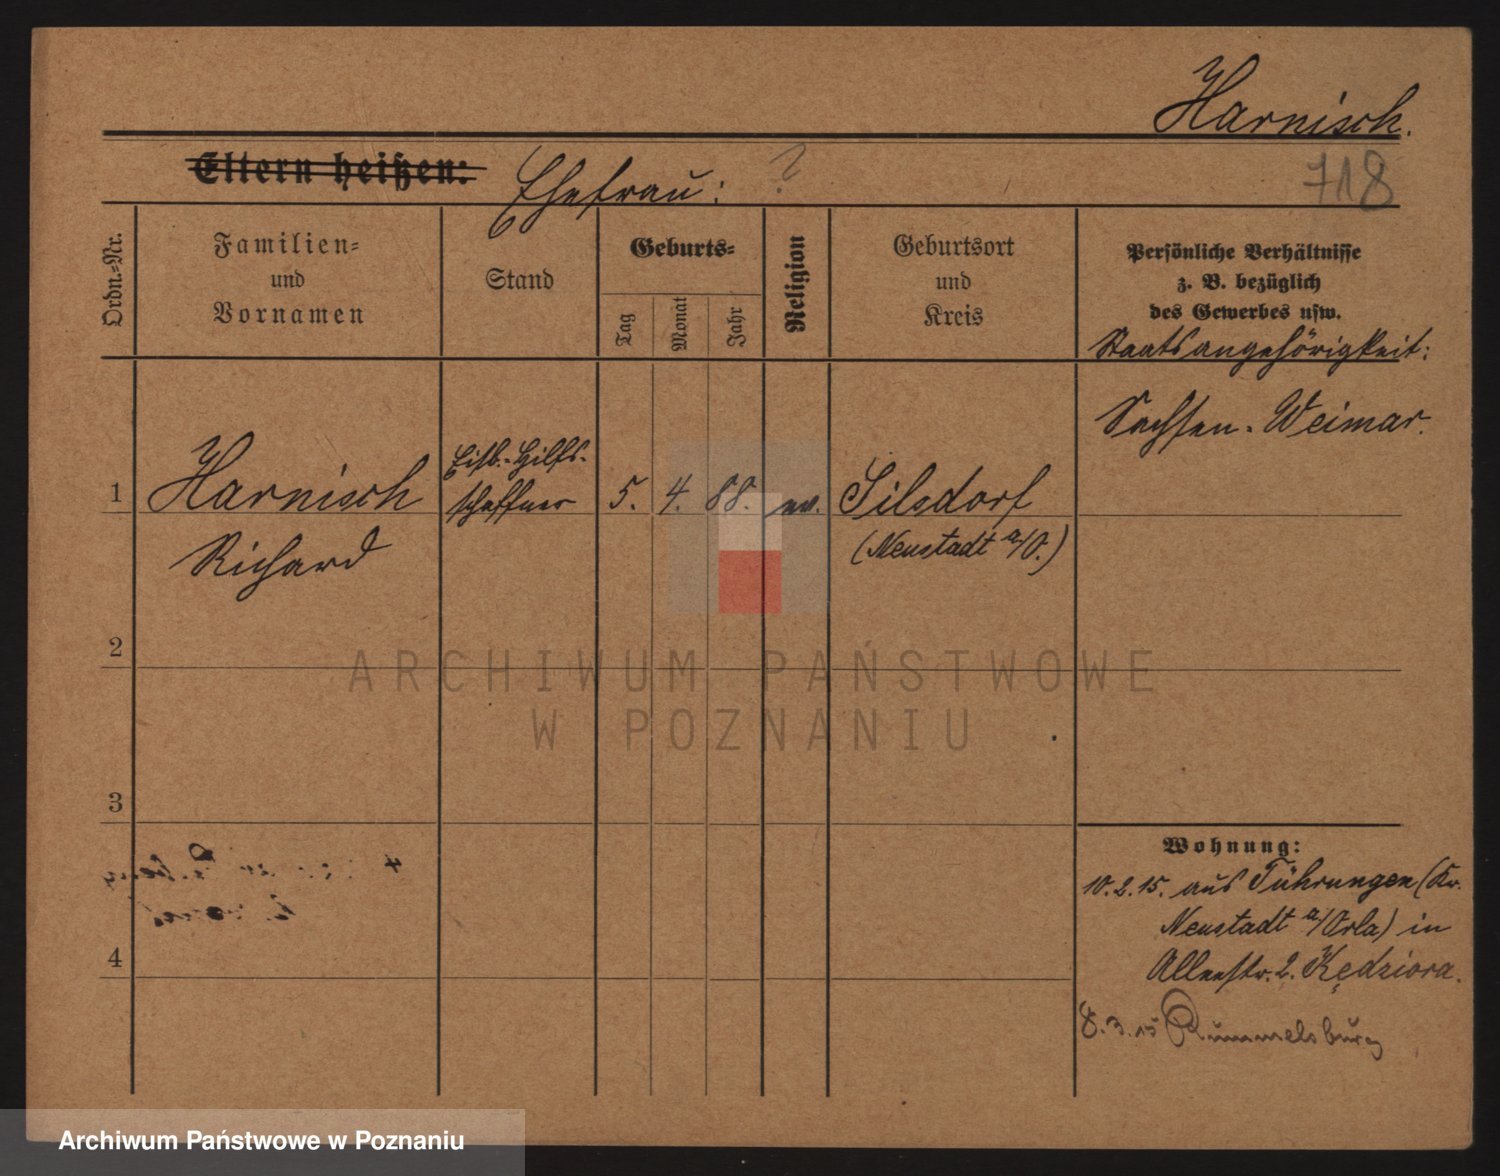 Harnisch.
Eltern heißen: Ehefrau: ?
718
Ordn.-Nr.
Familien-
und
Vornamen
Stand
Geburts-
Tag
Monat
Jahr
Religion
Geburtsort
und
Kreis
Persönliche Verhältnisse
z. B. bezüglich
des Gewerbes usw.
Staatsangehörigkeit:
Sachsen-Weimar.
1 Harnisch
Richard
Eisb.-Hilfs-
schaffner
5. 4. 88. ev.
Silsdorf
(Neustadt a/O.)
2
3
4
Wohnung:
10.2.15. aus (Kr.
Neustadt a/Orla) in
Alleestr. 2. Kędziora.
8.3.15 Rummelsburg
ARCHIWUM PAŃSTWOWE
W POZNANIU
Archiwum Państwowe w Poznaniu